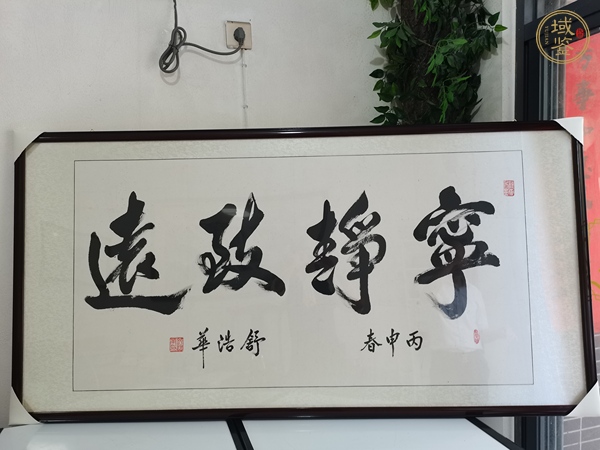 寧靜致遠
丙申春 舒浩華
域鉴